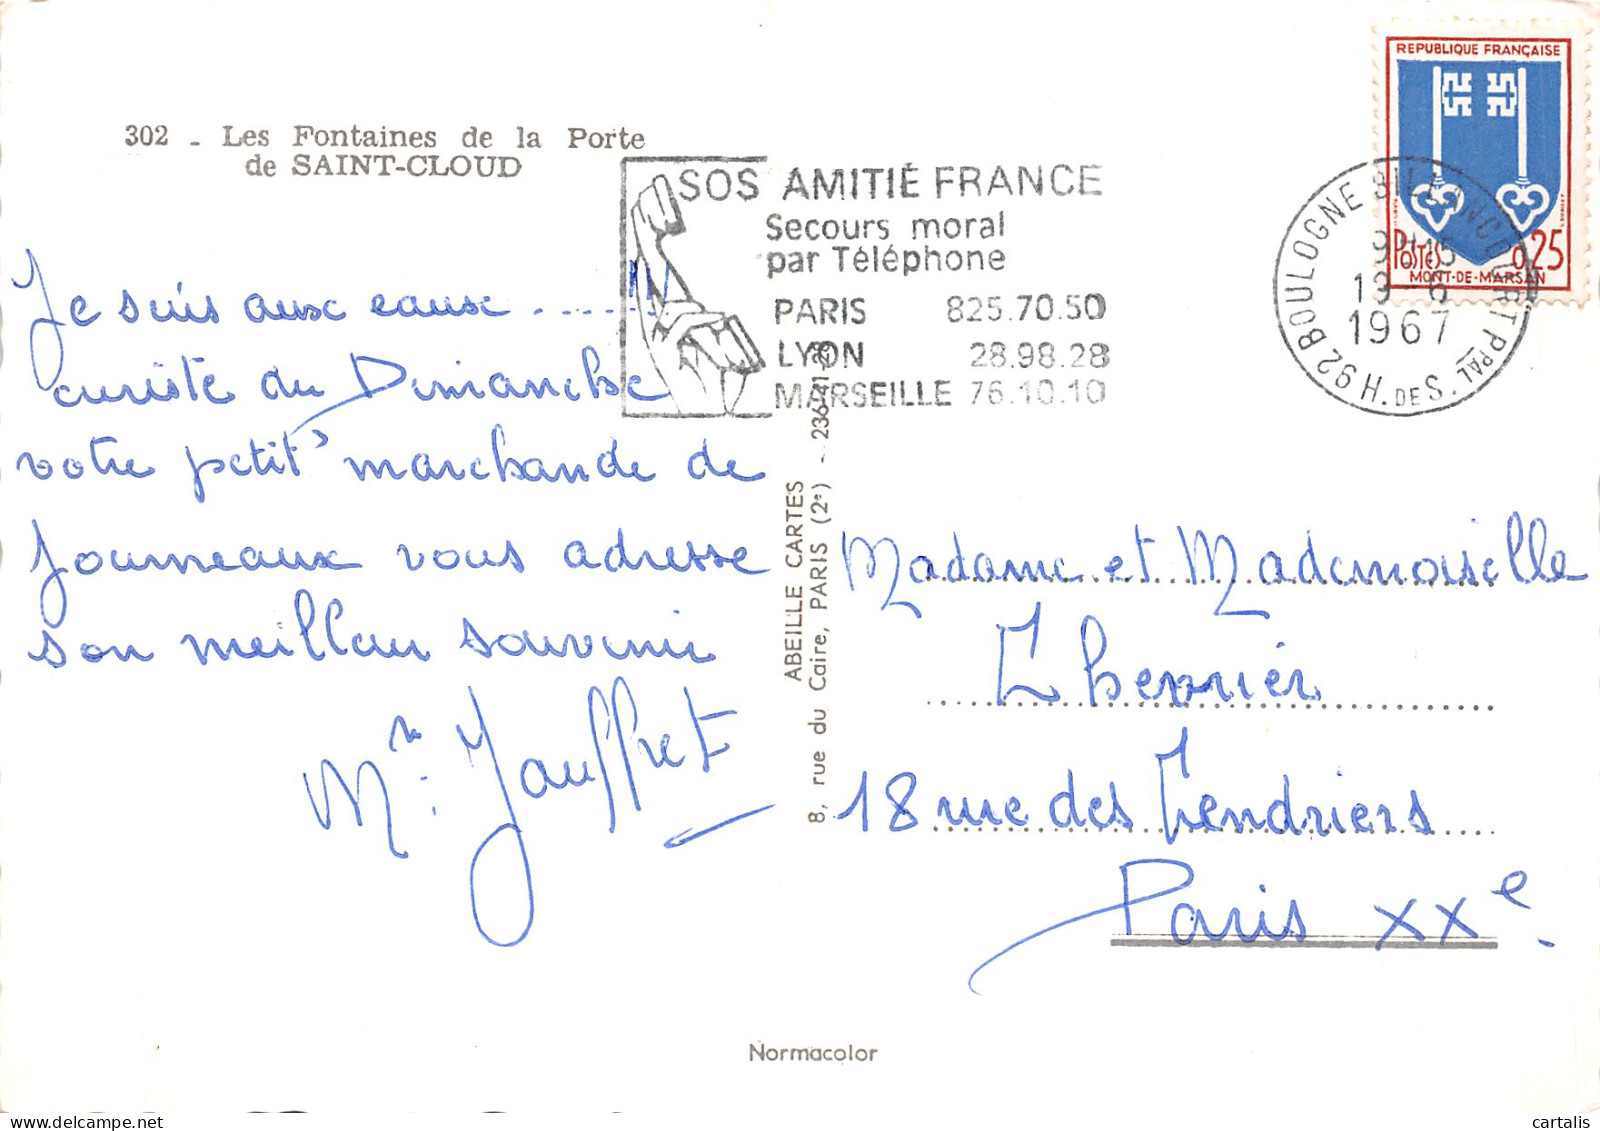 302 - Les Fontaines de la Porte
de SAINT-CLOUD
REPUBLIQUE FRANÇAISE
POSTES 0,25
MONT-DE-MARSAN
SOS AMITIÉ FRANCE
Secours moral
par Téléphone
PARIS 825.70.50
LYON 28.98.28
MARSEILLE 76.10.10
92 BOULOGNE BILLANCOURT PPAL
H. DES S.
9H15
19-6
1967
Je suis aux eaux ...... !!!
curiste du Dimanche
votre petit' marchande de
Journeaux vous adresse
son meillau souvenir
Mn: Jauffret
ABEILLE CARTES
8, rue du Caire, PARIS (2e) - 236
Madame et Mademoiselle
18 rue des Tendriers
Paris XXe.
Normacolor
cartalis sur Delcampe.net